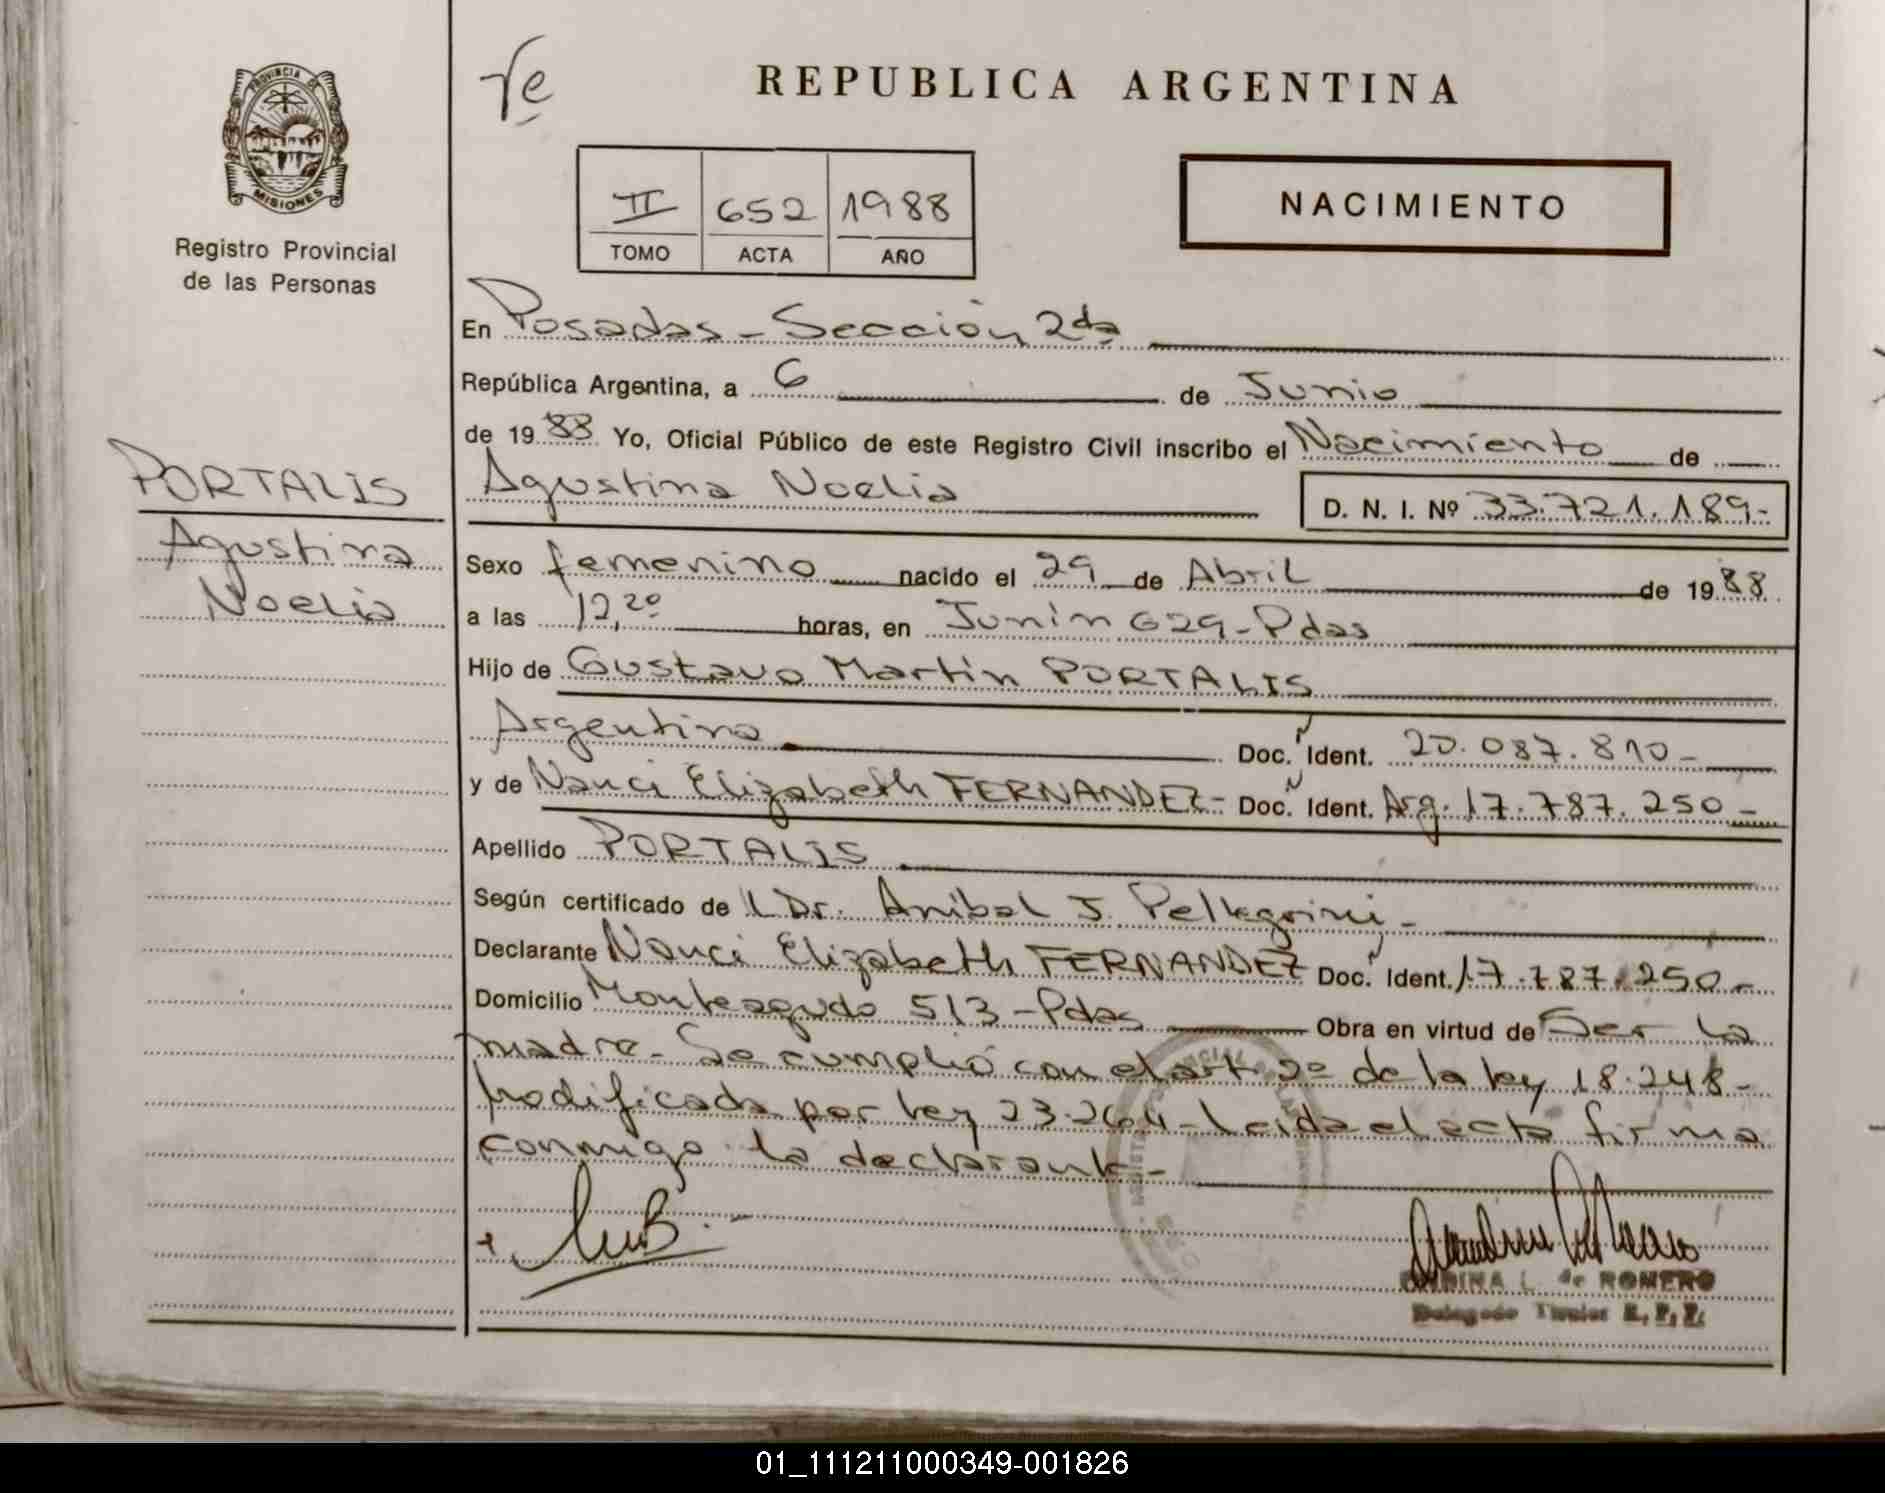 Te
REPUBLICA ARGENTINA
PROVINCIA DE
MISIONES
Registro Provincial
de las Personas
II 652 1988
TOMO ACTA AÑO
NACIMIENTO
En Posadas - Sección 2da
República Argentina, a 6 de Junio
de 1988 Yo, Oficial Público de este Registro Civil inscribo el Nacimiento de
Agustina Noelia D. N. I. Nº 33.721.189-
PORTALIS
Agustina
Noelia
Sexo femenino nacido el 29 de Abril de 1988
a las 12,20 horas, en Junín 629 - Pdas
Hijo de Gustavo Martín PORTALIS
Argentino Doc. Ident. 20.087.810-
y de Nanci Elizabeth FERNANDEZ- Doc. Ident. Arg. 17.787.250-
Apellido PORTALIS
Según certificado de l Dr. Anibal J. Pellegrini -
Declarante Nanci Elizabeth FERNANDEZ Doc. Ident. 17.787.250-
Domicilio Monteagudo 513 - Pdas Obra en virtud de Ser la
madre - Se cumplió con el art 2º de la ley 18.248-
Modificada por ley 23.264 - Leida el acta firma
conmigo la declarante-
L. de ROMERO
Delegado Titular R. P. P.
01_111211000349-001826